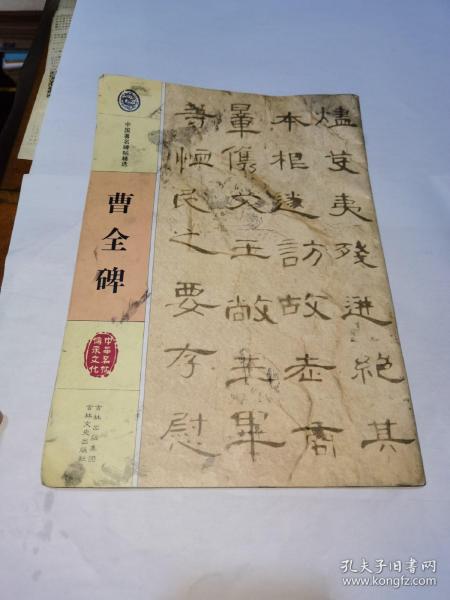 中国著名碑帖精选
曹全碑
傳承文化
吉林出版集团
吉林文史出版社
燼芟夷殘迸絕其
本根遂訪故老商
量儁艾王敞王畢
等恤民之要存慰
孔夫子旧书网
www.kongfz.com